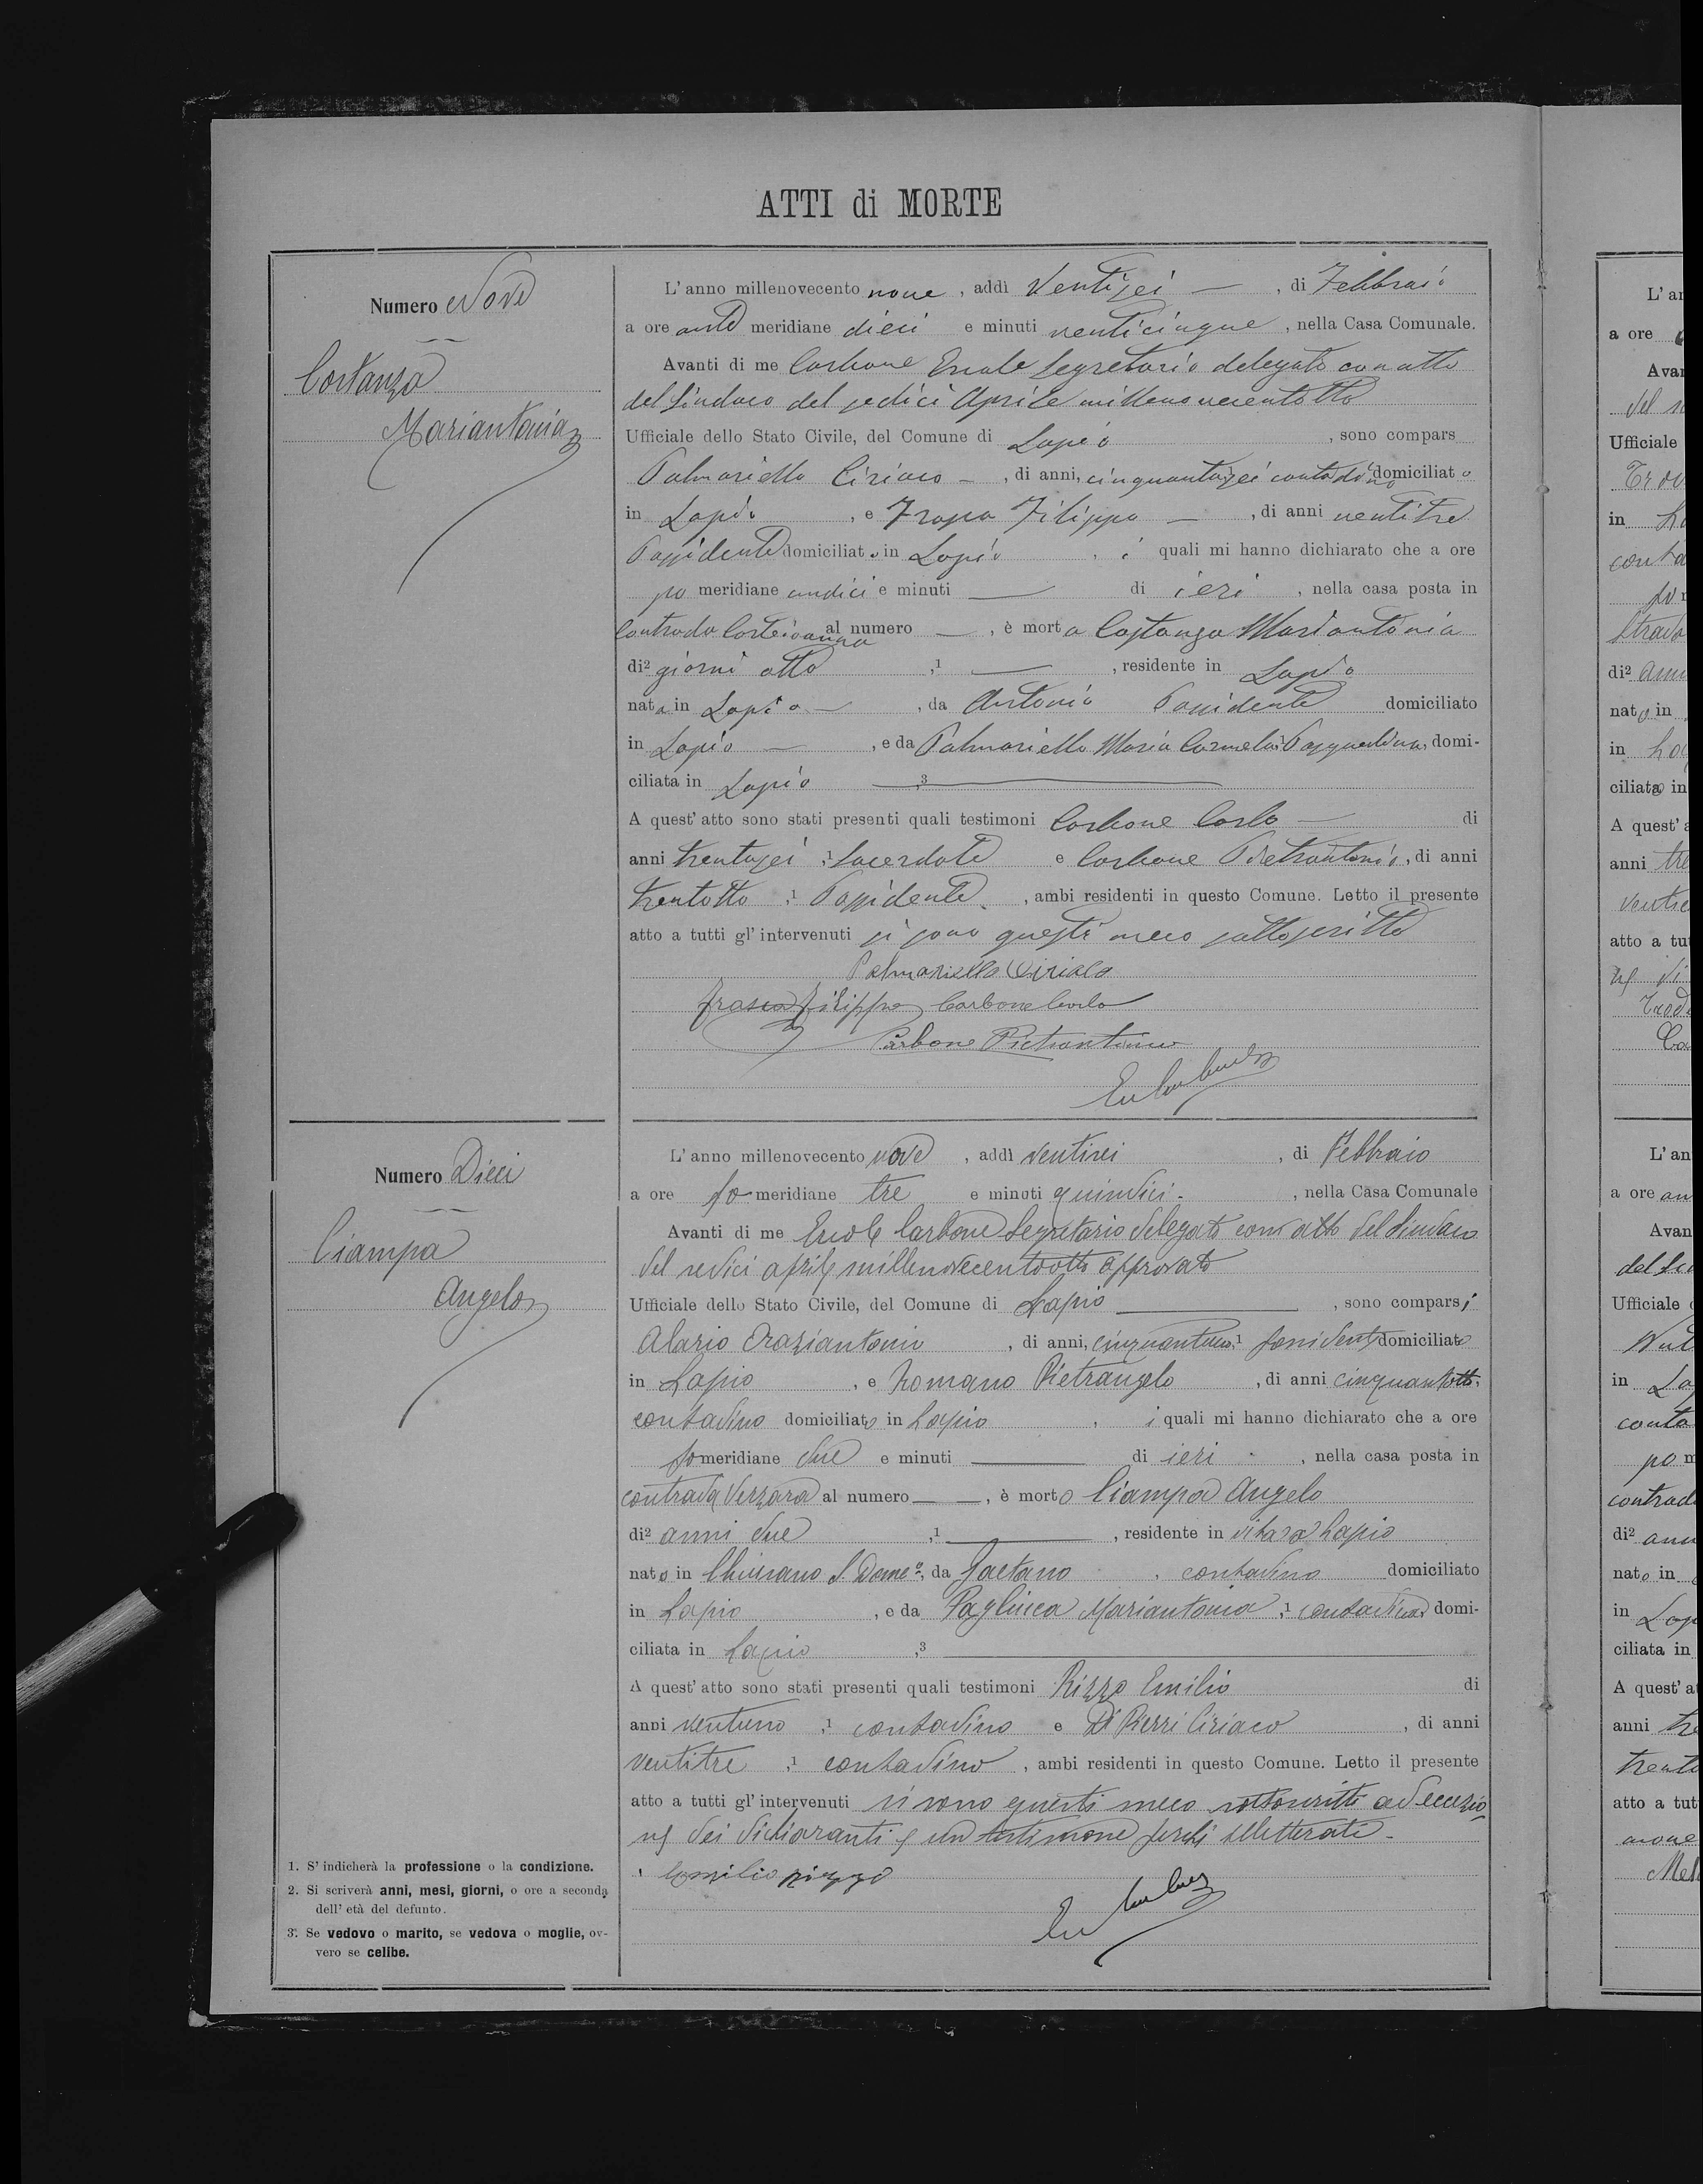 ATTI di MORTE
Numero Nove
Costanza
Mariantonia
L'anno millenovecento nove, addì Ventisei —, di Febbraio
a ore ante meridiane dieci e minuti venticinque, nella Casa Comunale.
Avanti di me Carbone Ercole Segretario delegato con atto
del Sindaco del sedici Aprile millenovecentotto
Ufficiale dello Stato Civile, del Comune di Lapio, sono compars
Palmariello Ciriaco —, di anni, cinquantasei contadino domiciliato
in Lapio, e Frasca Filippo —, di anni ventitre
Possidente domiciliato in Lapio, i quali mi hanno dichiarato che a ore
po meridiane undici e minuti — di ieri, nella casa posta in
Contrada al numero —, è morta Costanza Mariantonia
di² giorni otto ,¹ —, residente in Lapio
nata in Lapio —, da Antonio Possidente domiciliato
in Lapio —, e da Palmariello Maria Carmela domi-
ciliata in Lapio ,³ —
A quest'atto sono stati presenti quali testimoni Carbone Carlo — di
anni trentasei ,¹ Sacerdote e Carbone Pietrantonio, di anni
trentotto ,¹ Possidente, ambi residenti in questo Comune. Letto il presente
atto a tutti gl'intervenuti si sono questi meco sottoscritto
Palmariello Ciriaco
Frasca Filippo Carbone Carlo
Carbone Pietrantonio
Numero Dieci
Ciampa
Angelo
L'anno millenovecento nove, addì ventisei, di Febbraio
a ore po meridiane tre e minuti quindici -, nella Casa Comunale
Avanti di me Ercole Carbone Segretario delegato con atto del Sindaco
del sedici aprile millenovecentootto approvato
Ufficiale dello Stato Civile, del Comune di Lapio —, sono comparsi
Alario Oraziantonio, di anni, cinquantuno ,¹ possidente domiciliato
in Lapio, e Romano Pietrangelo, di anni cinquantotto,
contadino domiciliato in Lapio, i quali mi hanno dichiarato che a ore
pomeridiane due e minuti — di ieri, nella casa posta in
contrada Verzara al numero —, è morto Ciampa Angelo
di² anni due ,¹ —, residente in vita a Lapio
nato in Chiusano S. Dome.º, da Gaetano, contadino domiciliato
in Lapio, e da Pagliuca Mariantonia ,¹ contadina domi-
ciliata in Lapio ,³ —
A quest'atto sono stati presenti quali testimoni Rizzo Emilio di
anni ventuno ,¹ contadino e Di Pierri Ciriaco, di anni
ventitre ,¹ contadino, ambi residenti in questo Comune. Letto il presente
atto a tutti gl'intervenuti si sono questi meco sottoscritti ad eccezio
ne dei dichiaranti e un testimone perchè illetterati -
Emilio Rizzo
1. S'indicherà la professione o la condizione.
2. Si scriverà anni, mesi, giorni, o ore a seconda
dell'età del defunto.
3. Se vedovo o marito, se vedova o moglie, ov-
vero se celibe.